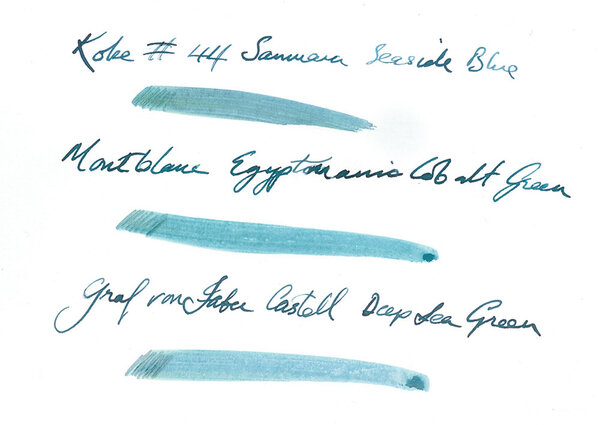 Kobe # 44 Seaside Blue
Montblanc Egyptomania Cobalt Green
Graf von Faber Castell Deep Sea Green